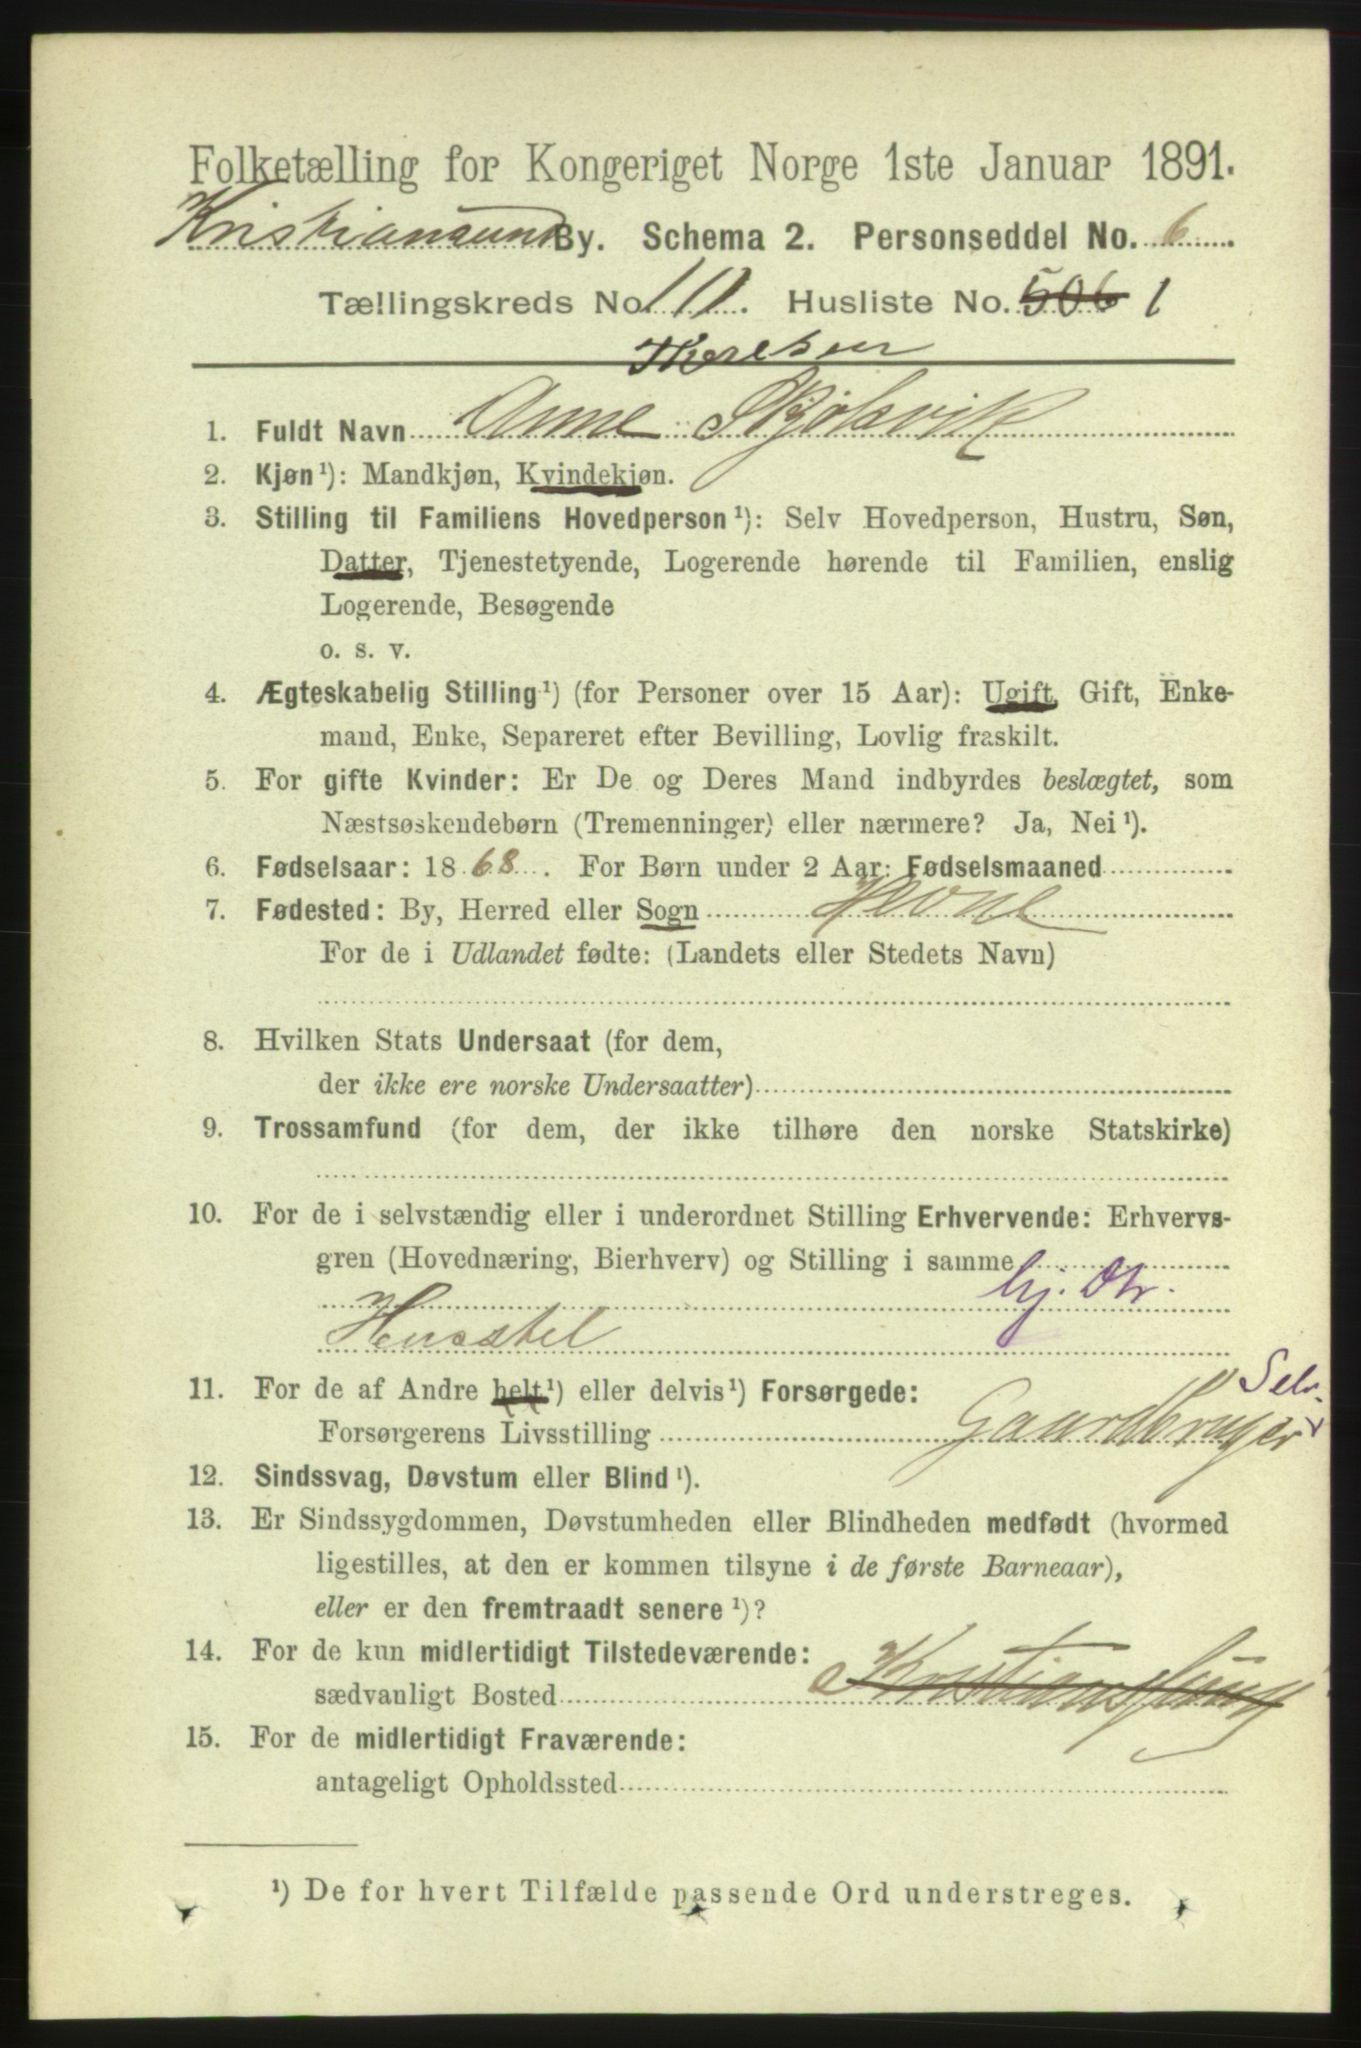 Folketælling for Kongeriget Norge 1ste Januar 1891.
Kristiansund By. Schema 2. Personseddel No. 6
Tællingskreds No. 10. Husliste No. 506 1
Theresen
1. Fuldt Navn Anne Skjølsvik
2. Kjøn¹): Mandkjøn, Kvindekjøn.
3. Stilling til Familiens Hovedperson¹): Selv Hovedperson, Hustru, Søn,
Datter, Tjenestetyende, Logerende hørende til Familien, enslig
Logerende, Besøgende
o. s. v.
4. Ægteskabelig Stilling¹) (for Personer over 15 Aar): Ugift, Gift, Enke-
mand, Enke, Separeret efter Bevilling, Lovlig fraskilt.
5. For gifte Kvinder: Er De og Deres Mand indbyrdes beslægtet, som
Næstsøskendebørn (Tremenninger) eller nærmere? Ja, Nei¹).
6. Fødselsaar: 1868. For Børn under 2 Aar: Fødselsmaaned
7. Fødested: By, Herred eller Sogn Hevne
For de i Udlandet fødte: (Landets eller Stedets Navn)
8. Hvilken Stats Undersaat (for dem,
der ikke ere norske Undersaatter)
9. Trossamfund (for dem, der ikke tilhøre den norske Statskirke)
10. For de i selvstændig eller i underordnet Stilling Erhvervende: Erhvervs-
gren (Hovednæring, Bierhverv) og Stilling i samme
hj. Dtr.
Husstel
11. For de af Andre helt¹) eller delvis¹) Forsørgede: Selv
Forsørgerens Livsstilling Gaardbruger
12. Sindssvag, Døvstum eller Blind¹).
13. Er Sindssygdommen, Døvstumheden eller Blindheden medfødt (hvormed
ligestilles, at den er kommen tilsyne i de første Barneaar),
eller er den fremtraadt senere¹)?
14. For de kun midlertidigt Tilstedeværende:
sædvanligt Bosted Kristianssund
15. For de midlertidigt Fraværende:
antageligt Opholdssted
¹) De for hvert Tilfælde passende Ord understreges.